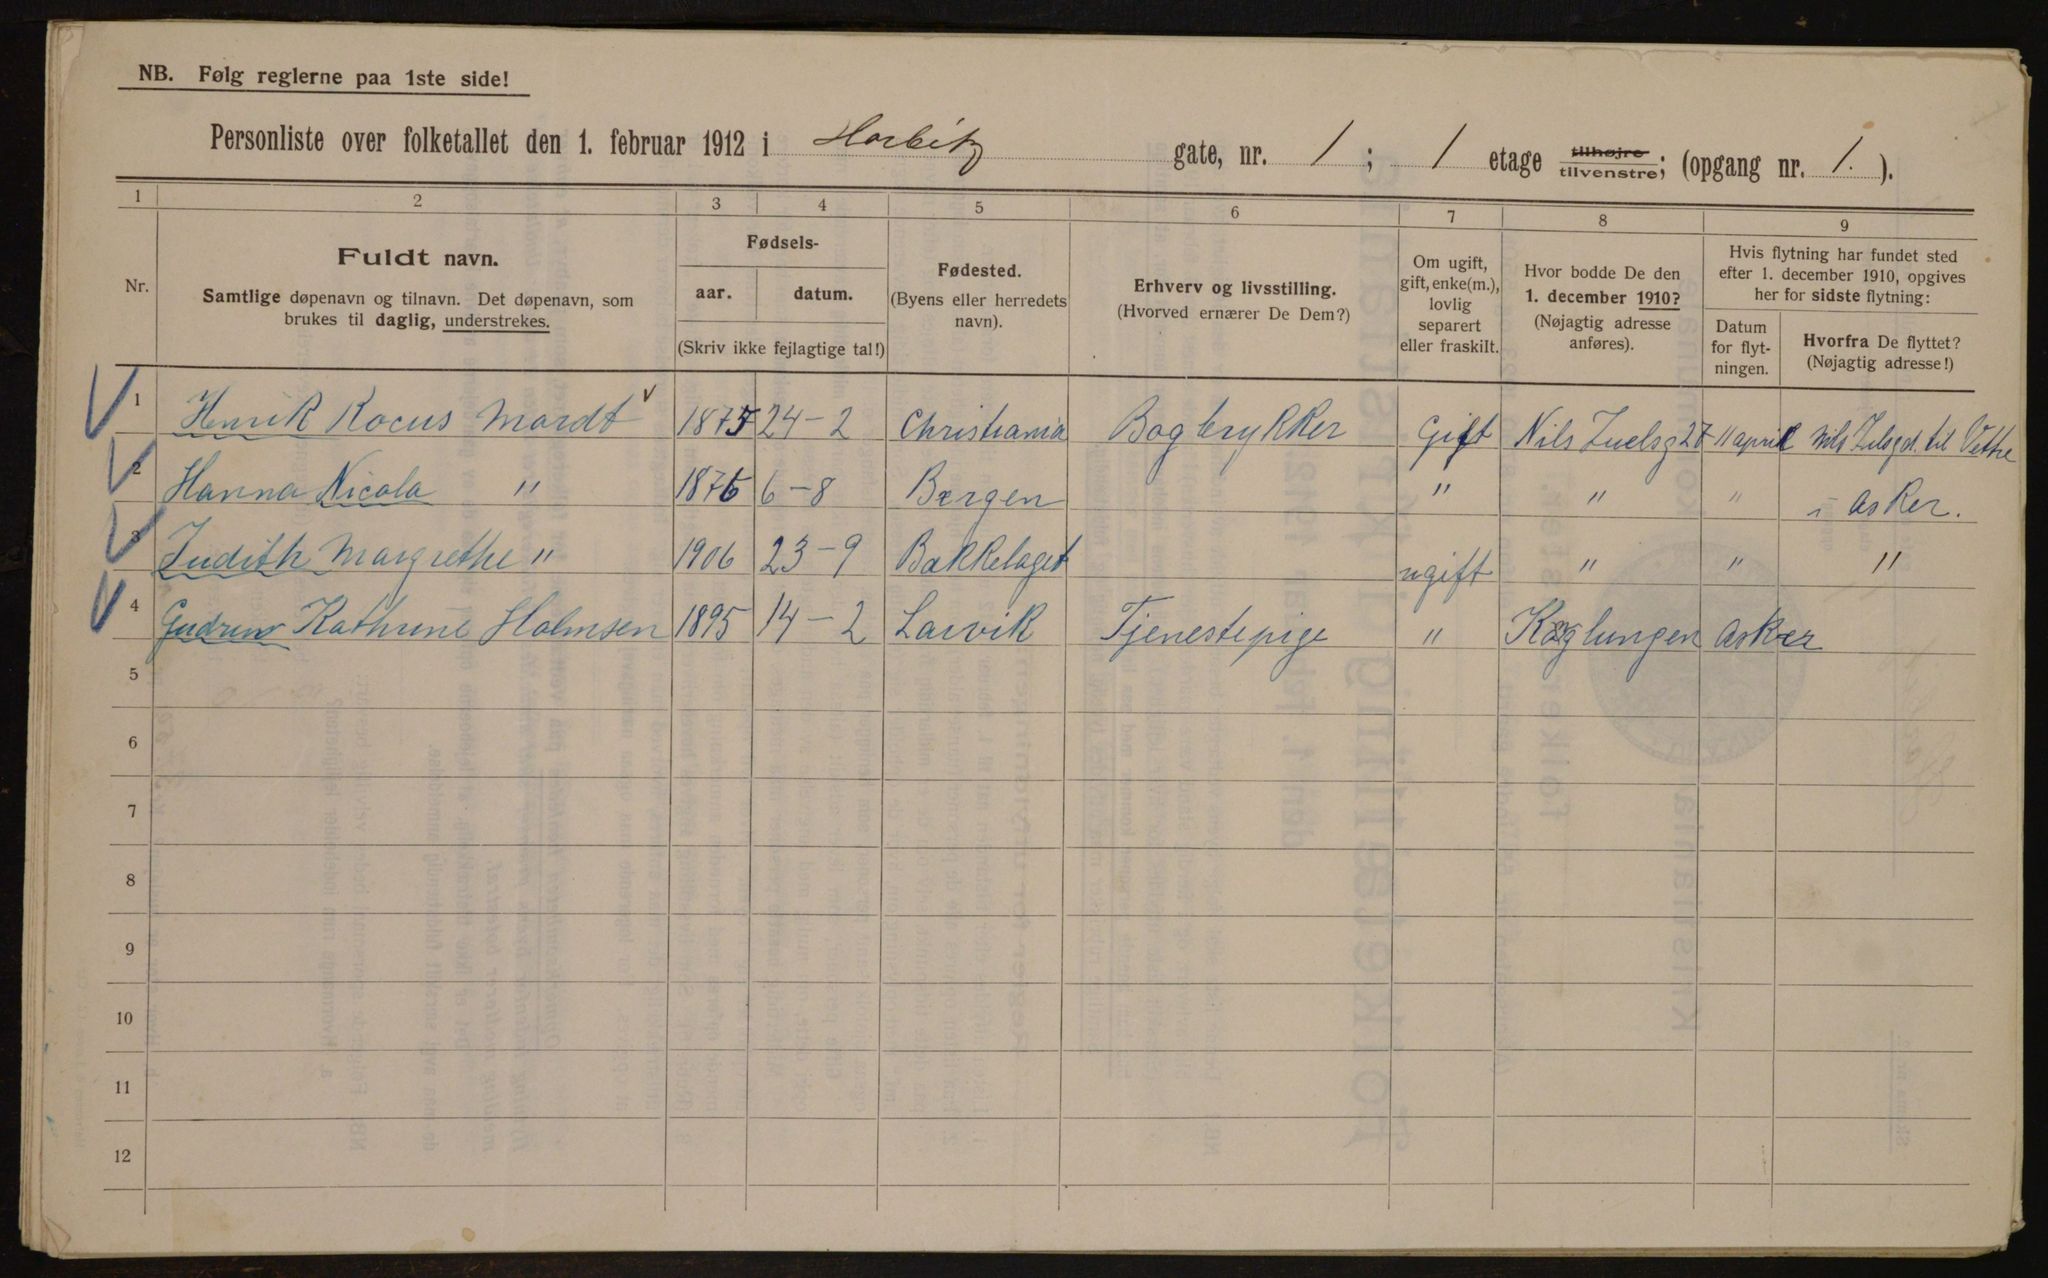 NB. Følg reglerne paa 1ste side!
Personliste over folketallet den 1. februar 1912 i Harbitz gate, nr. 1 ; 1 etage tilhøjre tilvenstre; (opgang nr. 1. ).
1 2 3 4 5 6 7 8 9
Nr.
Fuldt navn.
Samtlige døpenavn og tilnavn. Det døpenavn, som
brukes til daglig, understrekes.
Fødsels-
aar. datum.
(Skriv ikke fejlagtige tal!)
Fødested.
(Byens eller herredets
navn).
Erhverv og livsstilling.
(Hvorved ernærer De Dem?)
Om ugift,
gift, enke(m.),
lovlig
separert
eller fraskilt.
Hvor bodde De den
1. december 1910?
(Nøjagtig adresse
anføres).
Hvis flytning har fundet sted
efter 1. december 1910, opgives
her for sidste flytning:
Datum
for flyt-
ningen.
Hvorfra De flyttet?
(Nøjagtig adresse!)
1 Henrik Rocus Mardt 1875 24-2 Christiania Bogtrykker Gift Nils Juelsg 27 11 april Nils til Vettre
2 Hanna Nicola " 1876 6-8 Bergen " " " i Asker.
3 Judith Margrethe " 1906 23-9 Bækkelaget ugift " " "
4 Gudrun Kathrine Holmsen 1895 14-2 Larvik Tjenestepige " Asker
5
6
7
8
9
10
11
12